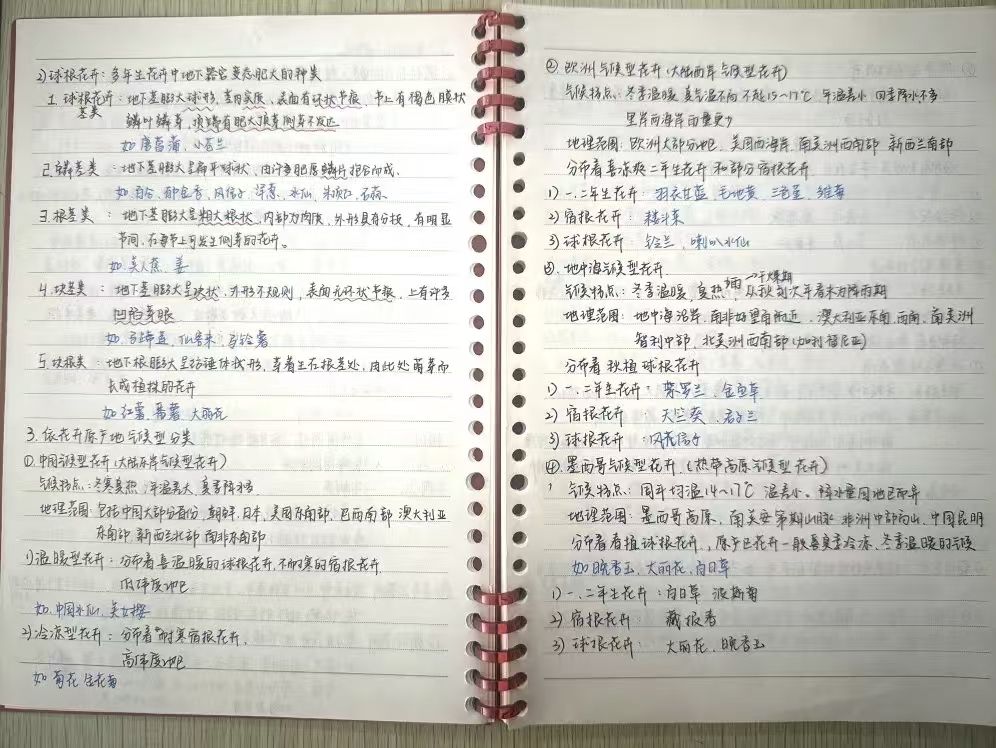 2) 球根花卉：多年生花卉中地下器官变态肥大的种类
1. 球根花卉：地下茎膨大球形，革质，表面有环状节痕，节上有褐色膜状
茎类
鳞叶鳞芽，顶端有肥大顶芽侧芽不发达
如 唐菖蒲，小苍兰
2. 鳞茎类：地下茎膨大呈扁平球状，由许多肥厚鳞片抱合而成。
如 百合 郁金香 风信子 洋葱 水仙 朱顶红 石蒜
3. 根茎类：地下茎膨大呈粗大根状，内部为肉质，外形具有分枝，有明显
节间，在每节上可发生侧芽的花卉。
如 美人蕉，姜
4. 块茎类：地下茎膨大呈块状，外形不规则，表面无环状节痕，上有许多
凹陷芽眼
如 马蹄莲 仙客来 马铃薯
5. 块根类：地下根膨大呈纺锤体状形，芽着生在根茎处，由此处萌芽而
长成植株的花卉
如 红薯 番薯 大丽花
3. 依花卉原产地气候型分类
①中国气候型花卉（大陆东岸气候型花卉）
气候特点：冬寒夏热 年温差大 夏季降水多
地理范围：包括中国大部分省份，朝鲜，日本，美国东南部，巴西南部 澳大利亚
东南部 新西兰北部 南非东南部
1) 温暖型花卉：分布着喜温暖的球根花卉，不耐寒的宿根花卉
低纬度地区
如 中国水仙，美女樱
2) 冷凉型花卉：分布着耐寒宿根花卉，
高纬度地区
如 菊花
② 欧洲气候型花卉（大陆西岸气候型花卉）
气候特点：冬季温暖 夏气温不高 不超15~17℃ 年温差小 四季降水不多
里岸西海岸雨量更少
地理范围：欧洲大部分地区 美国西海岸 南美洲西南部 新西兰南部
分布着喜凉爽二年生花卉和部分宿根花卉
1) 一、二年生花卉：羽衣甘蓝，毛地黄 三色堇 雏菊
2) 宿根花卉：耧斗菜
3) 球根花卉：铃兰，喇叭水仙
③. 地中海气候型花卉
气候特点：冬季温暖，夏热少雨→干燥期 从秋到次年春末为降雨期
地理范围：地中海沿岸，南非好望角附近，澳大利亚东南，西南，南美洲
智利中部，北美洲西南部（加利福尼亚）
分布着 秋植球根花卉
1) 一、二年生花卉：紫罗兰，金鱼草
2) 宿根花卉：天竺葵，君子兰
3) 球根花卉：风信子
④ 墨西哥气候型花卉（热带高原气候型花卉）
气候特点：周年均温14~17℃ 温差小。降水量因地区而异
地理范围：墨西哥高原，南美安第斯山脉 非洲中部高山，中国昆明
分布着春植球根花卉，原产区花卉一般喜夏季冷凉，冬季温暖的气候
如 晚香玉，大丽花，百日草
1) 一、二年生花卉：百日草 波斯菊
2) 宿根花卉：藏报春
3) 球根花卉：大丽花、晚香玉